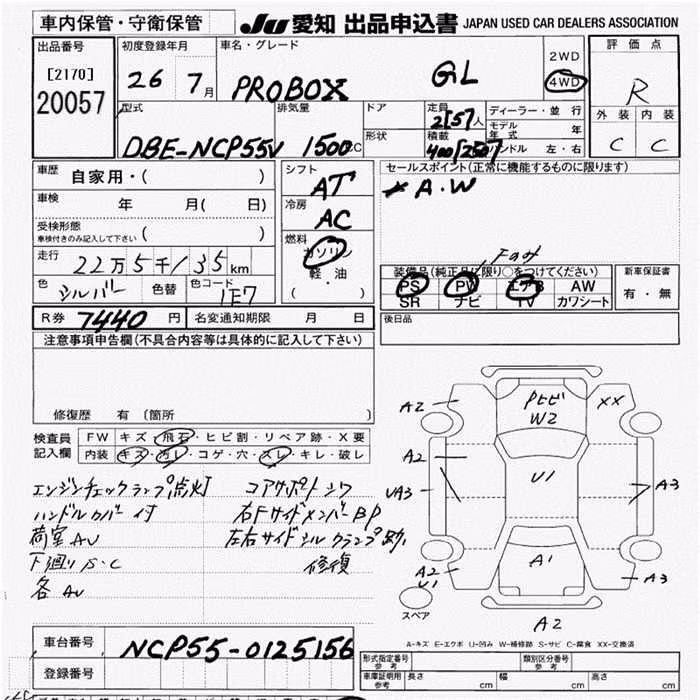 車内保管・守衛保管 JU 愛知 出品申込書 JAPAN USED CAR DEALERS ASSOCIATION
出品番号 初度登録年月 車名・グレード 2WD 評価点
[2170] 26 7月 PROBOX GL 4WD R
20057
型式 排気量 ドア 定員 2[5]人 ディーラー・並行 外装 内装
モデル年式 年
DBE-NCP55V 1500CC 形状 積載 ハンドル 左・右 C C
車歴 自家用・( ) シフト AT セールスポイント(正常に機能するものに限ります)
A.W
車検 年 月( 日) 冷房 AC
受検形態
車検付きのみ記入して下さい ( )
燃料 ガソリン
走行 22万5千135km 軽・油
( )
Fのみ
装備品(純正品に限り○をつけてください) 新車保証書
色 シルバー 色替 色コード 1E7
PS PW エアB AW 有・無
SR ナビ TV カワシート
R券 7440円 名変通知期限 月 日 後日品
注意事項申告欄(不具合内容等は具体的に記入して下さい)
修復歴 有 (箇所 )
検査員記入欄 FW キズ・飛石・ヒビ割・リペア跡・X要
内装 キズ・汚レ・コゲ・穴・スレ・キレ・破レ
エンジンチェックランプ点灯 コアサポートシワ
ハンドルカバー付 右FサイドメンバーBP
荷室AU 左右サイドシルクランプ跡
下廻りS・C 修復
各AU
A2 PヒビW2 XX
A2 U1 A3
UA3
A2 U1 A1 A3
スペア A2
A-キズ E-エクボ U-凹み W-補修跡 S-サビ C-腐食 XX-交換済
車台番号 NCP55-0125156
登録番号
形式指定番号 参考 類別区分番号 参考
車庫証明用 参考 長さ cm 幅 cm 高さ cm